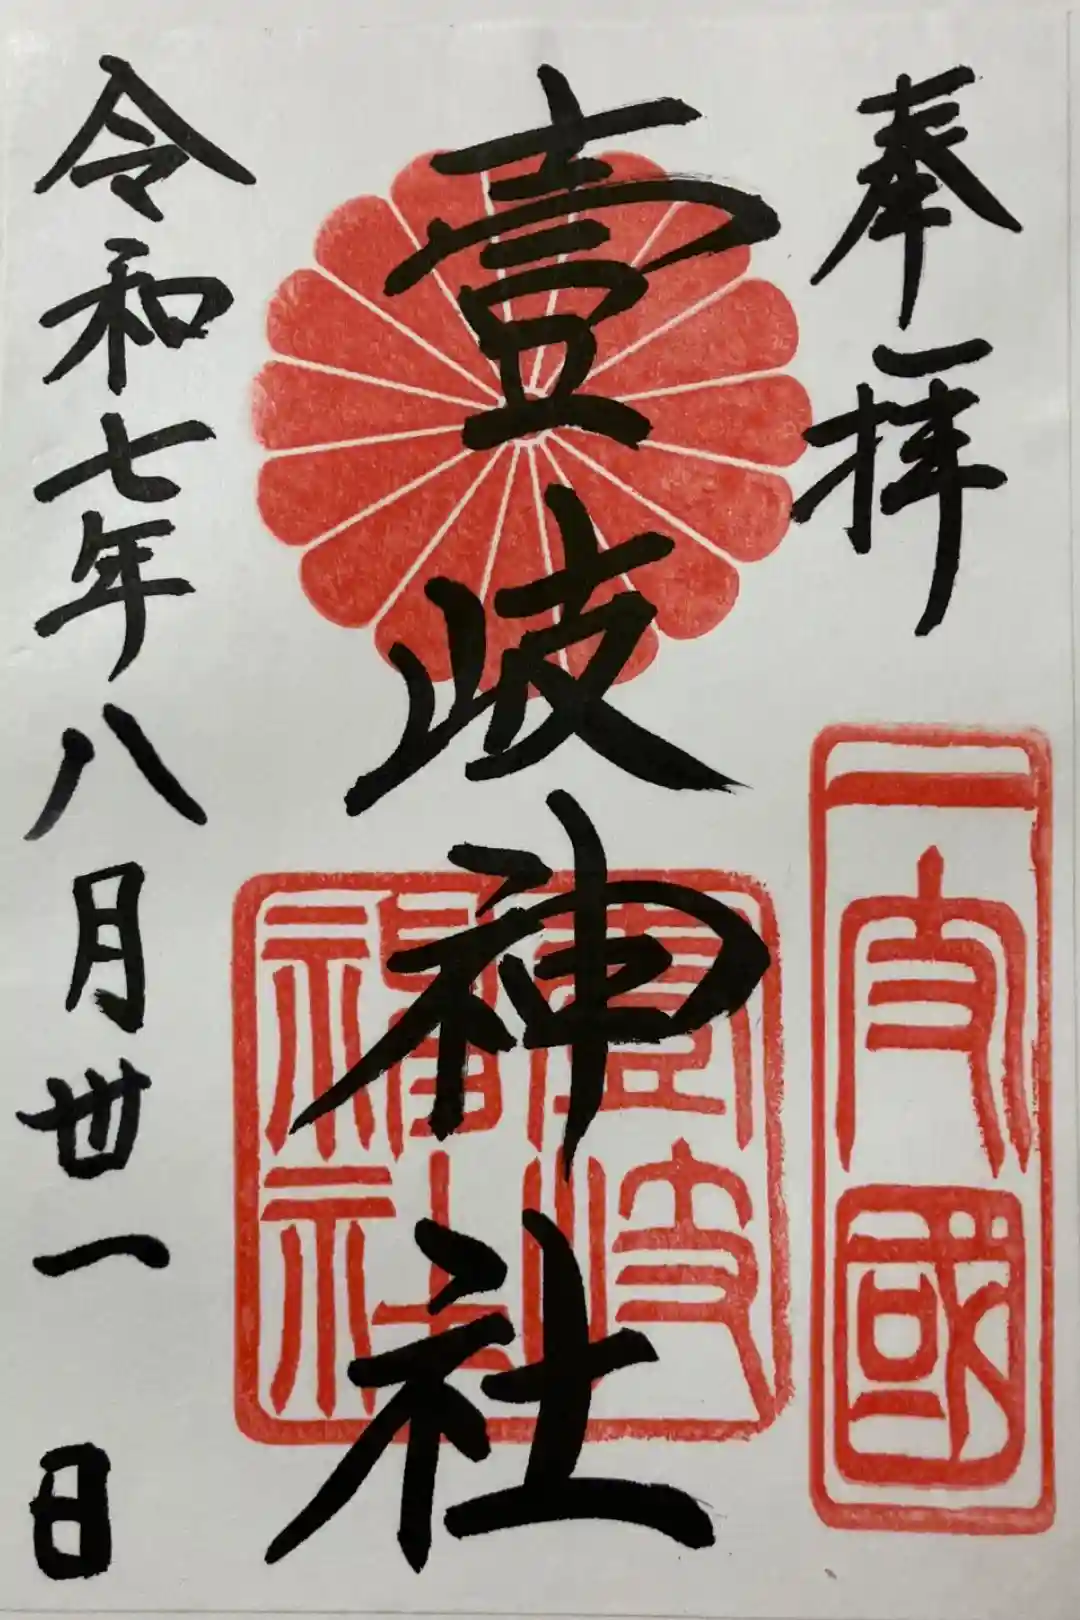 奉拝
一支國
壹岐神社
壹岐
神社
令和七年八月卅一日